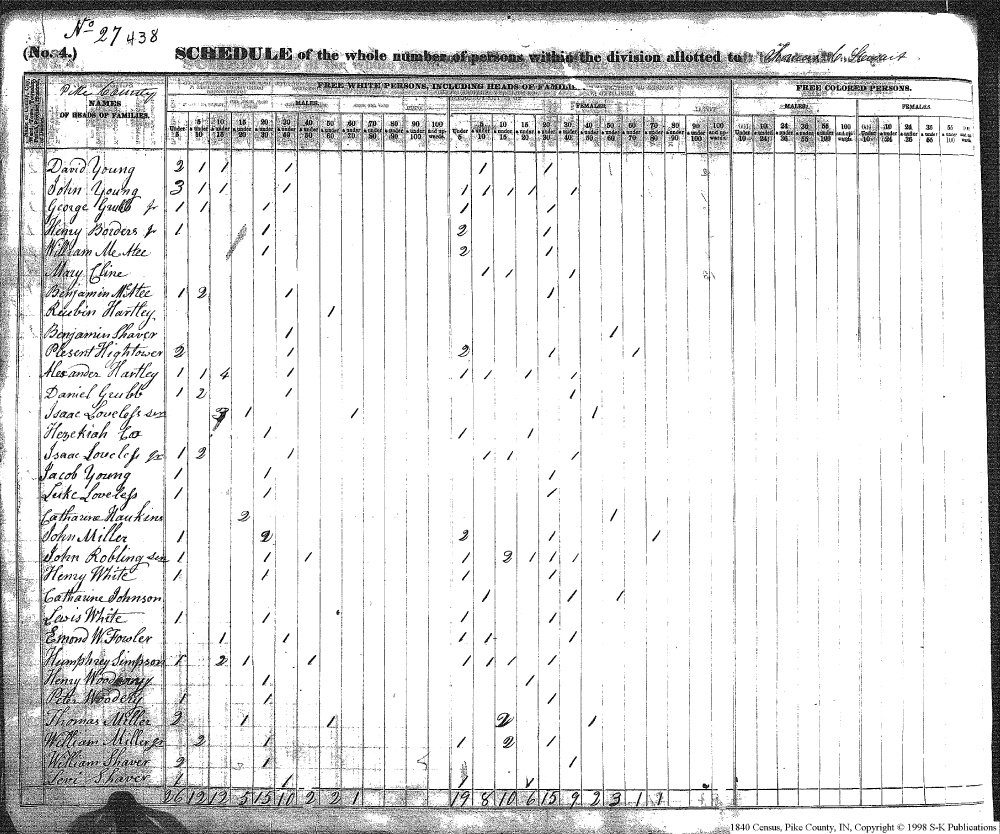 No 27 438
(No. 4.) SCHEDULE of the whole number of persons within the division allotted to Thomas C. Stewart
Pike County
NAMES OF HEADS OF FAMILIES.
FREE WHITE PERSONS, INCLUDING HEADS OF FAMILIES.
FREE COLORED PERSONS.
MALES. FEMALES. MALES. FEMALES.
Under 5 5 & under 10 10 & under 15 15 & under 20 20 & under 30 30 & under 40 40 & under 50 50 & under 60 60 & under 70 70 & under 80 80 & under 90 90 & under 100 100 and upwards
David Young 2 1 1 1 1 1
John Young 3 1 1 1 1 1 1 1 1
George Grubb Jr 1 1 1 1 1
Henry Borders Jr 1 1 2 1
William McAtee 1 2 1
Mary Cline 1 1 1
Benjamin McAtee 1 2 1 1
Reubin Hartley 1
Benjamin Shaver 1 1
Plesent Hightower 2 1 2 1 1
Alexander Hartley 1 1 4 1 1 1 1 1
Daniel Grubb 1 2 1 1
Isaac Loveless sen 1 1 1
Hezekiah Cox 1 1 1
Isaac Loveless Jr 1 2 1 1 1 1
Jacob Young 1 1 1
Luke Loveless 1 1 1
Catharine Haukins 2 1
John Miller 1 2 2 1 1
John Robling sen 1 1 1 1 2 1 1 1
Henry White 1 1 1 1
Catharine Johnson 1 1 1
Lewis White 1 1 1 1
Emond W. Fowler 1 1 1 1 1
Humphrey Simpson 1 2 1 1 1 1 1 1
Henry 1 1
Peter Woodery 1 1 1
Thomas Miller 2 1 1 2 1
William Miller Jr 2 1 1 2 1
William Shaver 2 1 1
Levi Shaver 1 1 1 1
26 12 12 5 15 10 2 2 1 19 8 10 6 15 9 2 3 1 1
1840 Census, Pike County, IN, Copyright © 1998 S-K Publications